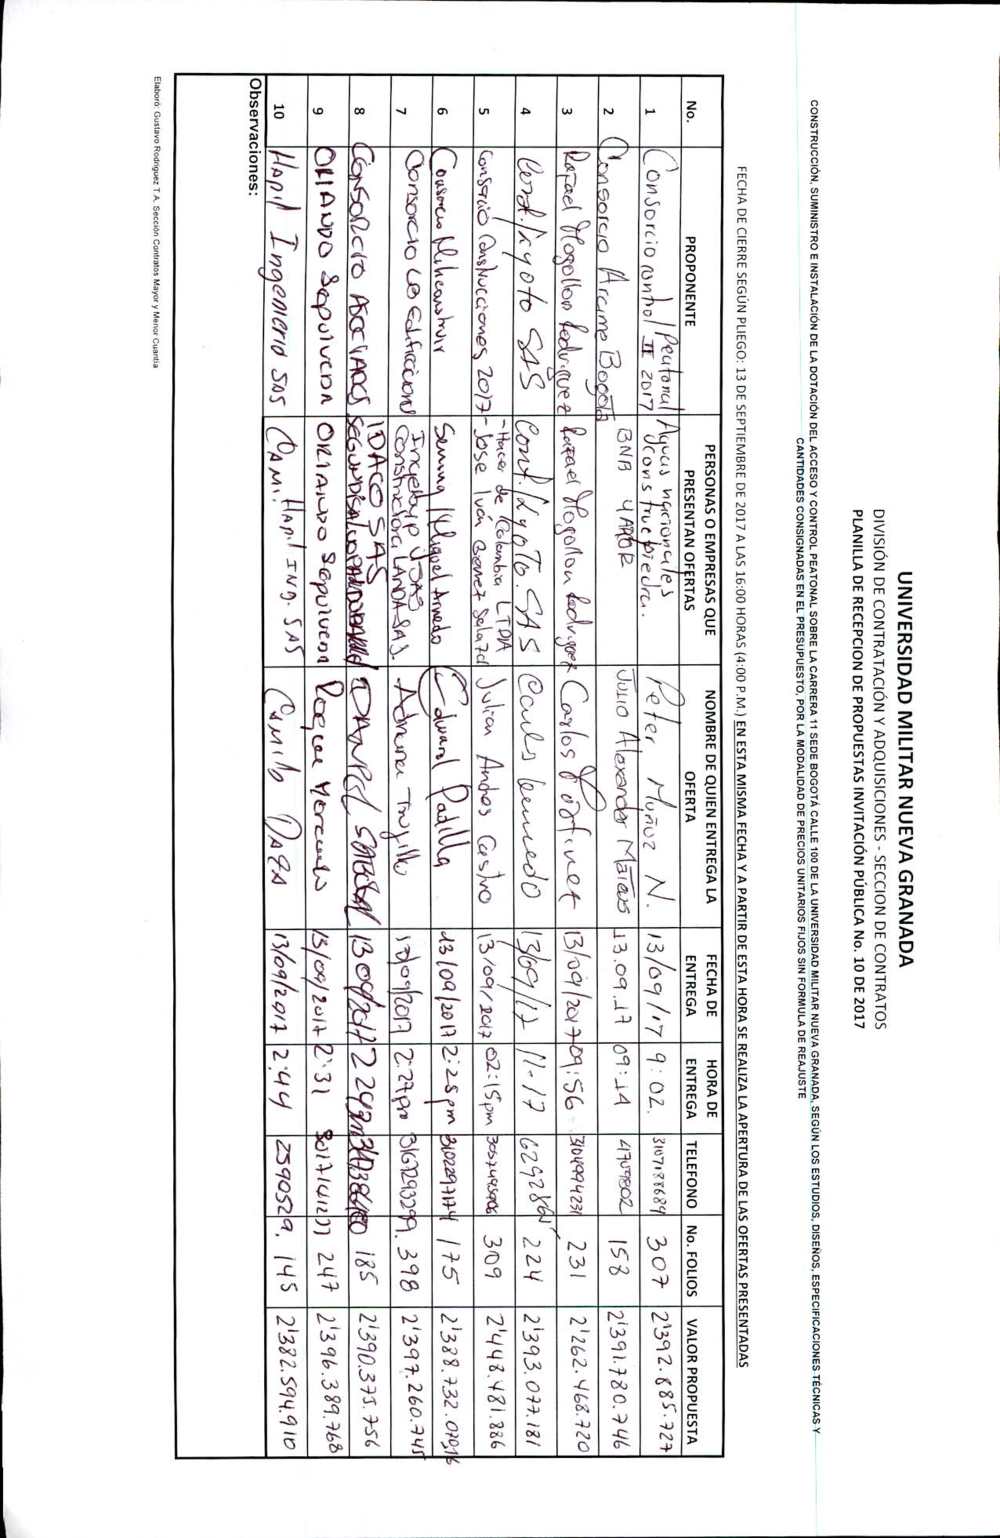 UNIVERSIDAD MILITAR NUEVA GRANADA
DIVISIÓN DE CONTRATACIÓN Y ADQUISICIONES - SECCION DE CONTRATOS
PLANILLA DE RECEPCION DE PROPUESTAS INVITACIÓN PÚBLICA No. 10 DE 2017
CONSTRUCCIÓN, SUMINISTRO E INSTALACIÓN DE LA DOTACIÓN DEL ACCESO Y CONTROL PEATONAL SOBRE LA CARRERA 11 SEDE BOGOTÁ CALLE 100 DE LA UNIVERSIDAD MILITAR NUEVA GRANADA, SEGÚN LOS ESTUDIOS, DISEÑOS, ESPECIFICACIONES TÉCNICAS Y
CANTIDADES CONSIGNADAS EN EL PRESUPUESTO, POR LA MODALIDAD DE PRECIOS UNITARIOS FIJOS SIN FORMULA DE REAJUSTE
FECHA DE CIERRE SEGÚN PLIEGO: 13 DE SEPTIEMBRE DE 2017 A LAS 16:00 HORAS (4:00 P.M.) EN ESTA MISMA FECHA Y A PARTIR DE ESTA HORA SE REALIZA LA APERTURA DE LAS OFERTAS PRESENTADAS
No. PROPONENTE PERSONAS O EMPRESAS QUE PRESENTAN OFERTAS NOMBRE DE QUIEN ENTREGA LA OFERTA FECHA DE ENTREGA HORA DE ENTREGA TELEFONO No. FOLIOS VALOR PROPUESTA
1 Consorcio control Peatonal II 2017 Aguas nacionales Peter Muñoz N. 13/09/17 9:02. 3107188684 307 2'392.885.727
2 Consorcio Arcame Bogotá BNB 4 Julio Alexander Matias 13.09.17 09:14 158 2'391.780.746
3 Rafael Mogollon Rodriguez Rafael Mogollon Rodriguez Carlos 13/09/2017 09:56 3104994231 231 2'262.468.720
4 SAS SAS 13/09/17 11-17 224 2'393.077.181
5 Consorcio Construcciones 2017 - Hacer de Colombia LTDA - Jose Ivan Gomez Salazar Julian Andres Castro 13/09/2017 02:15pm 309 2'448.481.886
6 Consorcio Miguel Edward Padilla 13/09/2017 2:25pm 175 2'388.732.079
7 Consorcio CONSTRUCTORA LANDA SAS. Adriana Trujillo 13/09/2017 2:27pm 3167293299. 398 2'397.260.745
8 CONSORCIO ASOCIADOS IDACO SAS 185 2'390.375.756
9 ORLANDO SEPULVEDA ORLANDO SEPULVEDA 13/09/2017 2:31 247 2'396.389.768
10 HAPIL INGENIERIA SAS HAPIL ING. SAS CAMILO DAZA 13/09/2017 2:44 2590529. 145 2'382.594.910
Observaciones:
Elaboró: Gustavo Rodriguez T A. Sección Contratos Mayor y Menor Cuantia